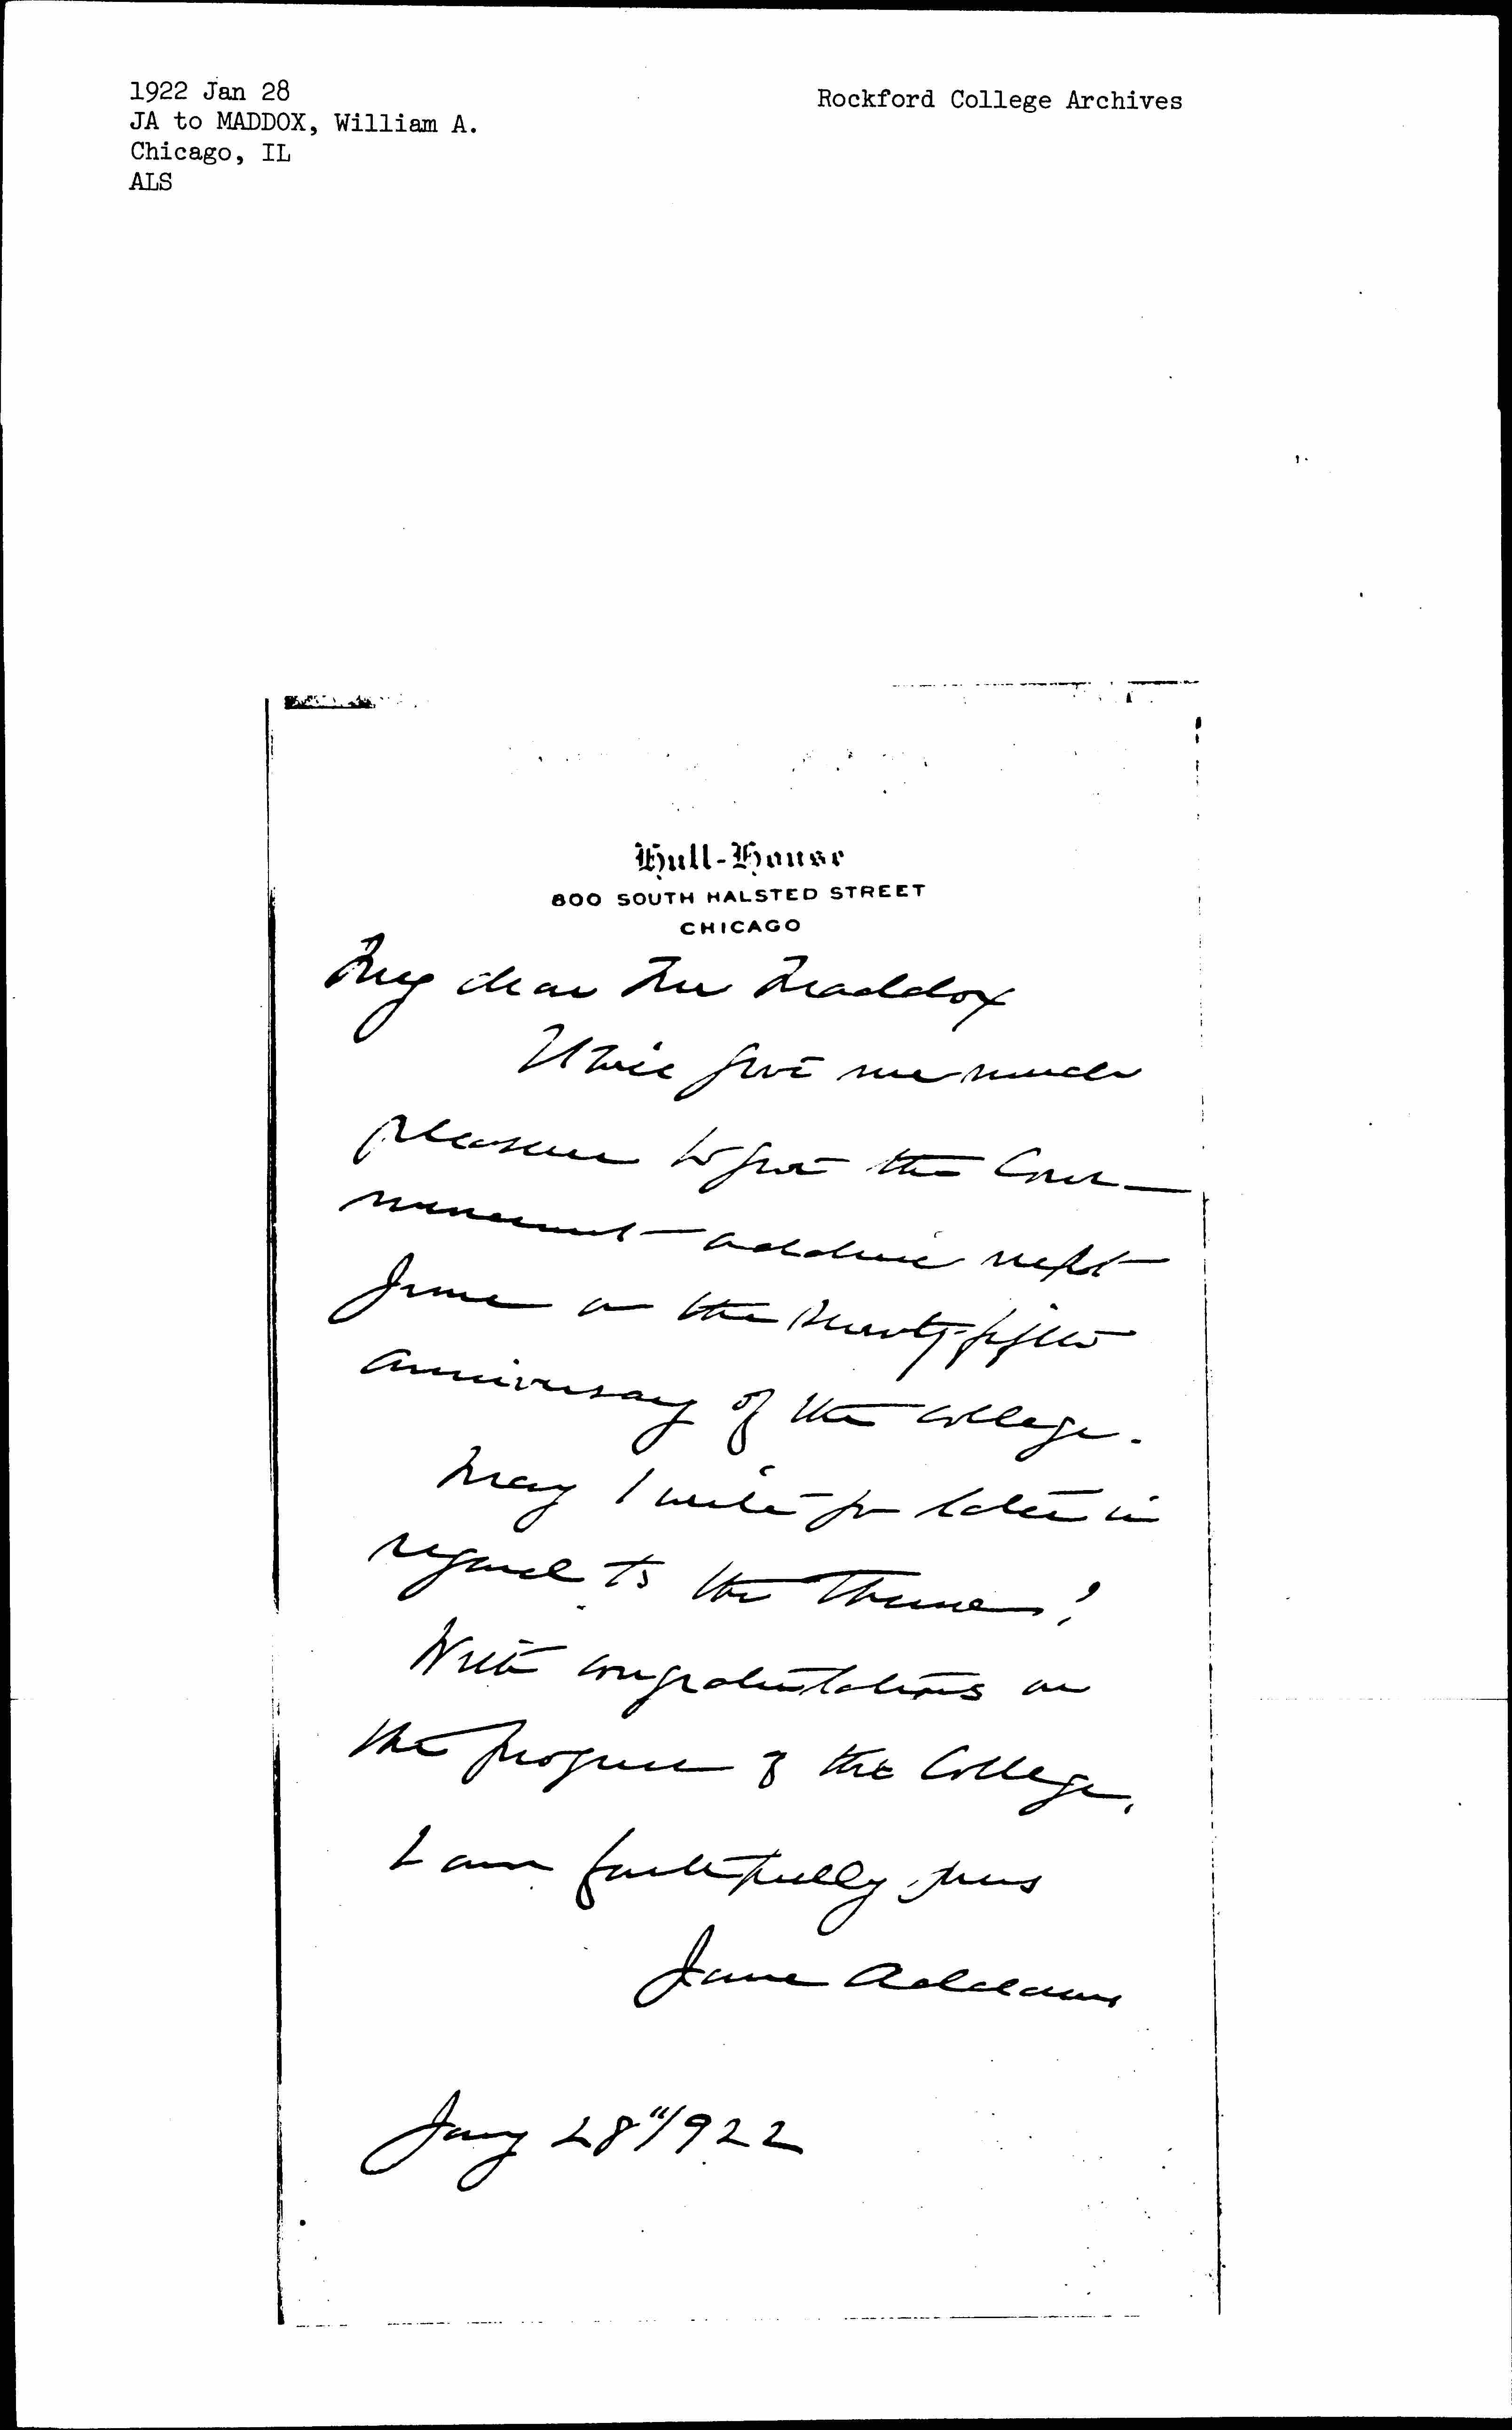 1922 Jan 28
JA to MADDOX, William A.
Chicago, IL
ALS
Rockford College Archives
Hull-House
800 SOUTH HALSTED STREET
CHICAGO
My dear Mr Maddox
It will give me much
pleasure to give the Com-
mencement address next
June on the seventy-fifth
anniversary of the college.
May I write you later in
regard to the theme?
With congratulations on
the progress of the College,
I am faithfully yours
Jane Addams
Jany 28" 1922